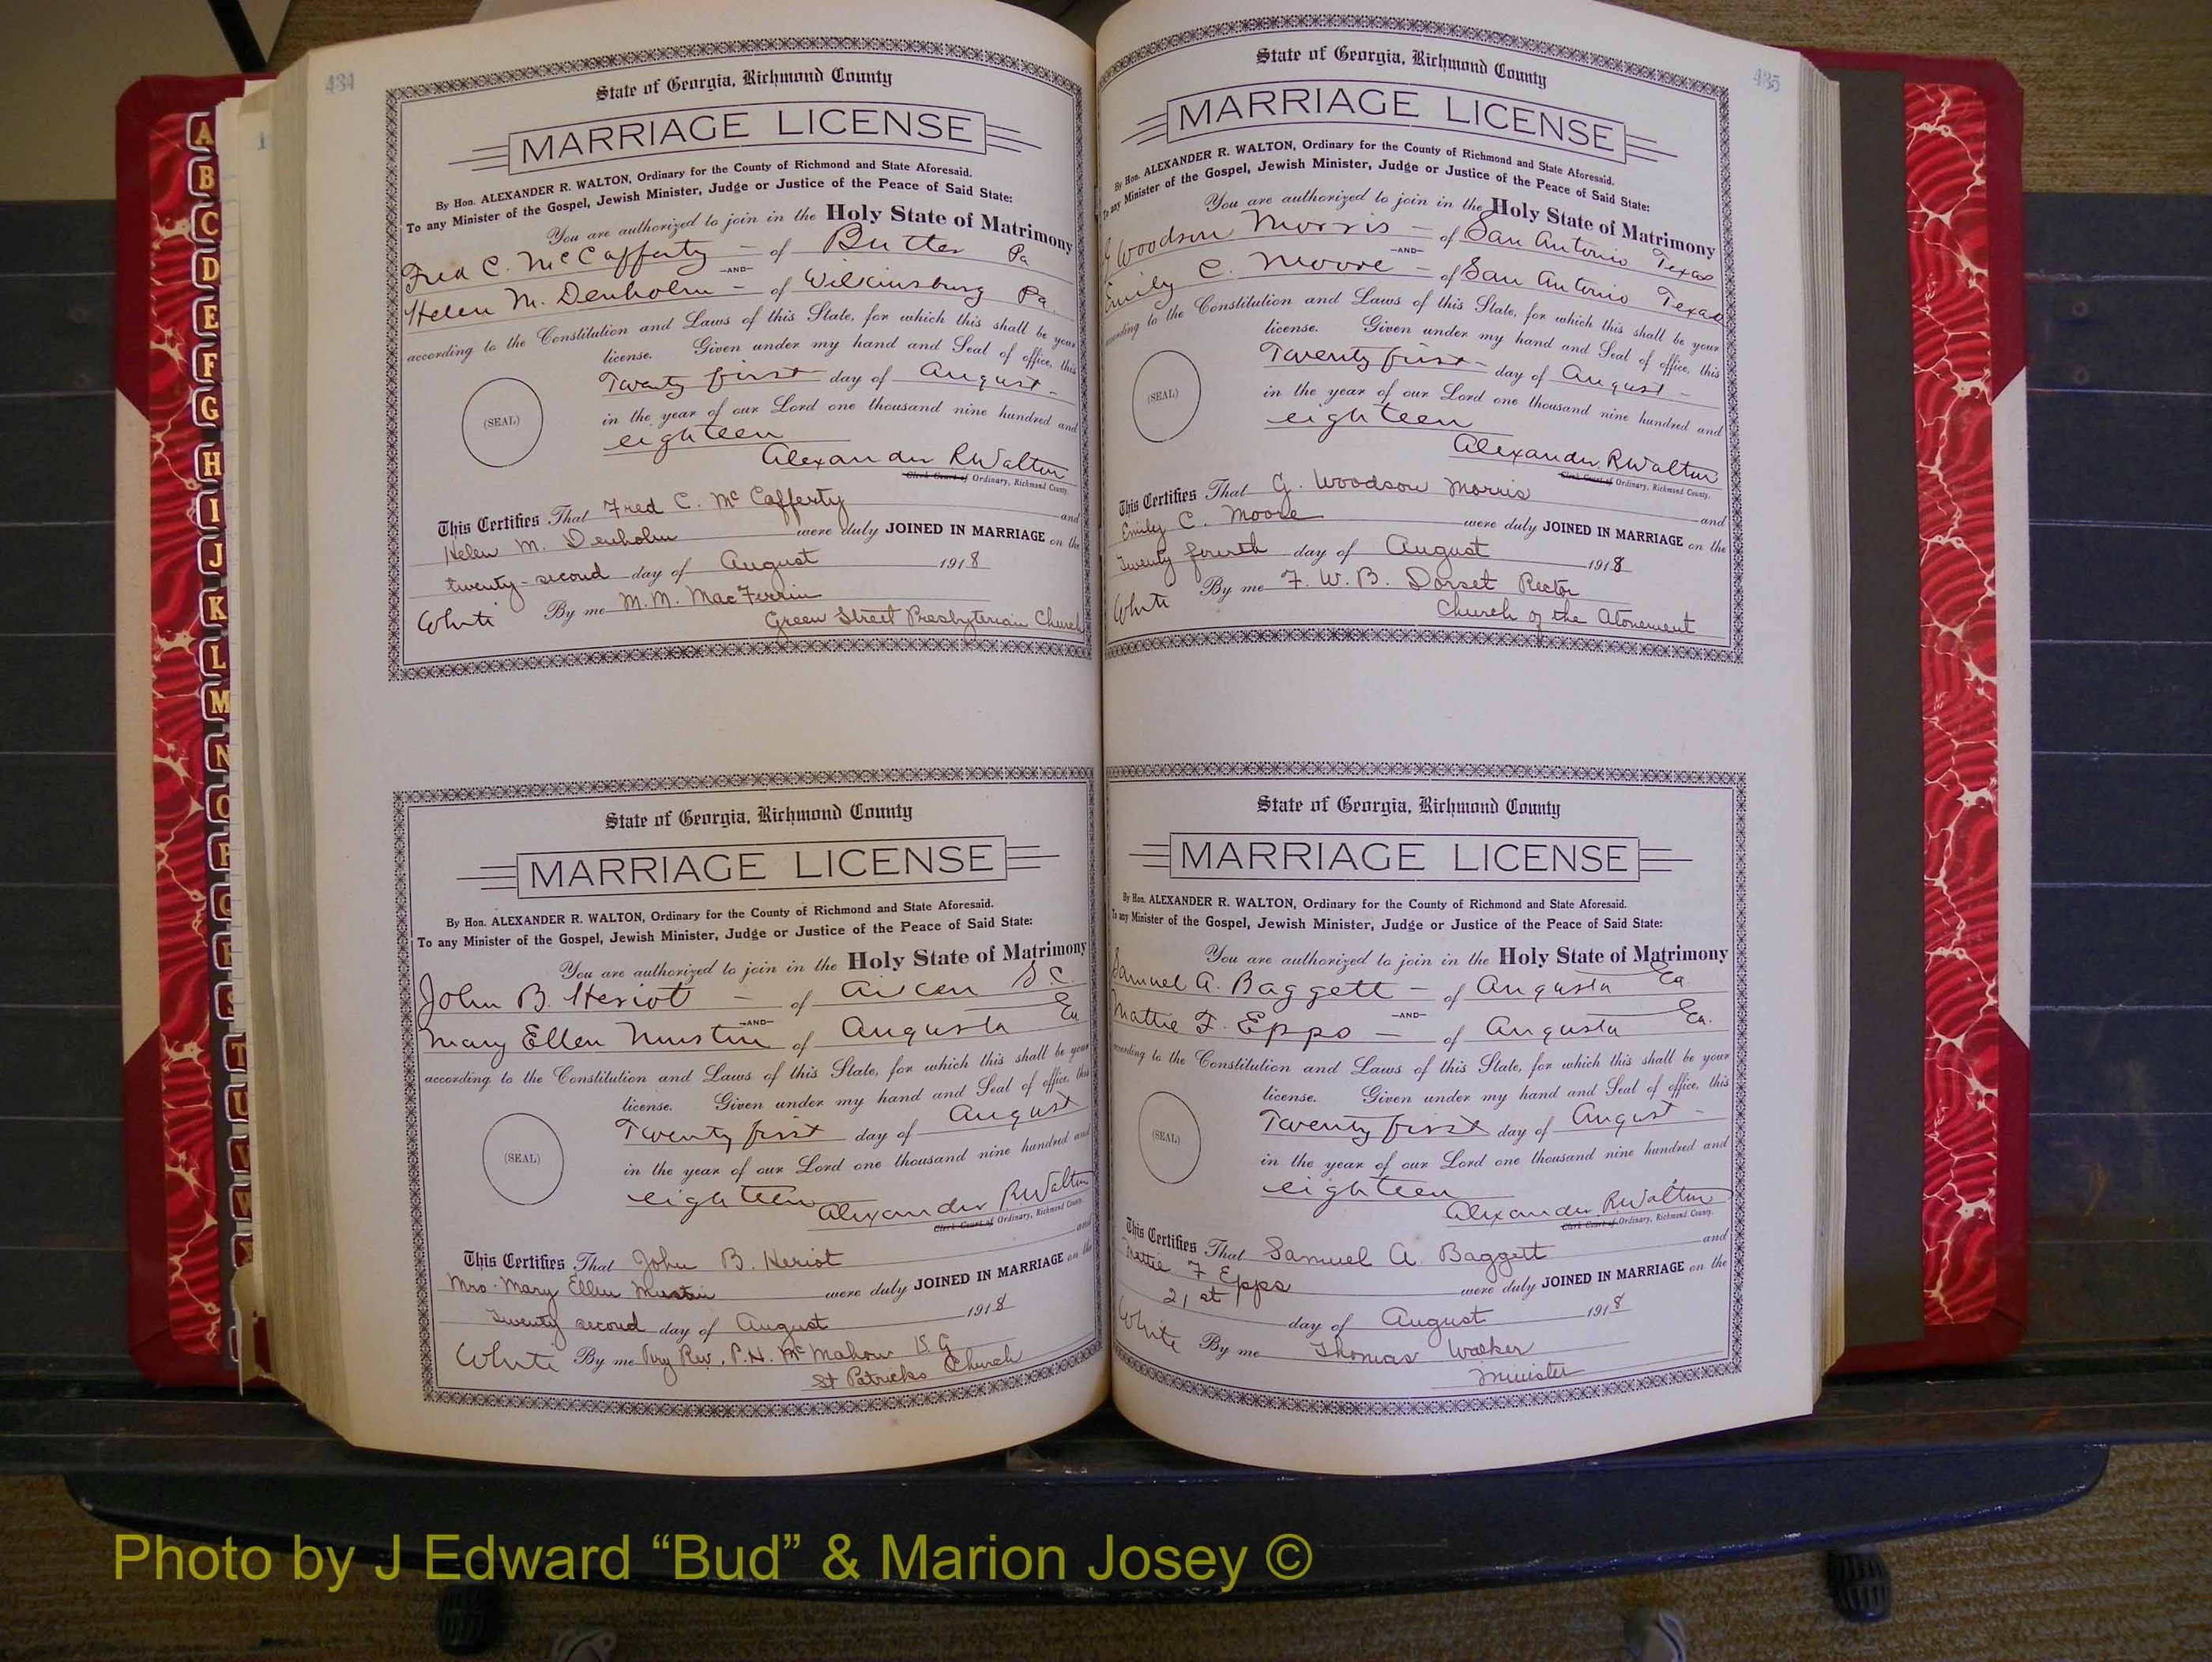 434
State of Georgia, Richmond County
MARRIAGE LICENSE
By Hon. ALEXANDER R. WALTON, Ordinary for the County of Richmond and State Aforesaid.
To any Minister of the Gospel, Jewish Minister, Judge or Justice of the Peace of Said State:
You are authorized to join in the Holy State of Matrimony
Fred C. McCafferty – of Butler Pa
–AND–
Helen M. Denholm – of Wilkinsburg Pa.
according to the Constitution and Laws of this State, for which this shall be your
license. Given under my hand and Seal of office, this
Twenty first day of August –
(SEAL)
in the year of our Lord one thousand nine hundred and
eighteen
Alexander R Walton
Clerk Court of Ordinary, Richmond County.
This Certifies That Fred C. McCafferty and
Helen M. Denholm were duly JOINED IN MARRIAGE on the
twenty-second day of August 1918
White By me M. M. MacFerrin
Green Street Presbyterian Church
State of Georgia, Richmond County
MARRIAGE LICENSE
By Hon. ALEXANDER R. WALTON, Ordinary for the County of Richmond and State Aforesaid.
To any Minister of the Gospel, Jewish Minister, Judge or Justice of the Peace of Said State:
You are authorized to join in the Holy State of Matrimony
John B. Heriot – of Aiken S.C.
–AND–
Mary Ellen Mustin of Augusta Ga
according to the Constitution and Laws of this State, for which this shall be your
license. Given under my hand and Seal of office, this
Twenty first day of August
(SEAL)
in the year of our Lord one thousand nine hundred and
eighteen
Alexander R Walton
Clerk Court of Ordinary, Richmond County.
This Certifies That John B. Heriot and
Mrs. Mary Ellen Mustin were duly JOINED IN MARRIAGE on the
Twenty second day of August 1918
White By me Very Rev. P. H. McMahon V. G.
St Patricks Church
435
State of Georgia, Richmond County
MARRIAGE LICENSE
By Hon. ALEXANDER R. WALTON, Ordinary for the County of Richmond and State Aforesaid.
To any Minister of the Gospel, Jewish Minister, Judge or Justice of the Peace of Said State:
You are authorized to join in the Holy State of Matrimony
Woodson Morris – of San Antonio Texas
–AND–
Emily C. Moore – of San Antonio Texas
according to the Constitution and Laws of this State, for which this shall be your
license. Given under my hand and Seal of office, this
Twenty first – day of August –
(SEAL)
in the year of our Lord one thousand nine hundred and
eighteen
Alexander R Walton
Clerk Court of Ordinary, Richmond County.
This Certifies That G. Woodson Morris and
Emily C. Moore were duly JOINED IN MARRIAGE on the
Twenty fourth day of August 1918
White By me F. W. B. Dorset Rector
Church of the Atonement
State of Georgia, Richmond County
MARRIAGE LICENSE
By Hon. ALEXANDER R. WALTON, Ordinary for the County of Richmond and State Aforesaid.
To any Minister of the Gospel, Jewish Minister, Judge or Justice of the Peace of Said State:
You are authorized to join in the Holy State of Matrimony
Samuel A. Baggett – of Augusta Ga
–AND–
Mattie F. Epps – of Augusta Ga.
according to the Constitution and Laws of this State, for which this shall be your
license. Given under my hand and Seal of office, this
Twenty first day of August –
(SEAL)
in the year of our Lord one thousand nine hundred and
eighteen
Alexander R Walton
Clerk Court of Ordinary, Richmond County.
This Certifies That Samuel A. Baggett and
Mattie F Epps were duly JOINED IN MARRIAGE on the
21st day of August 1918
White By me Thomas Walker
Minister
A
B
C
D
E
F
G
H
I
J
K
L
M
N
O
P
Q
R
S
T
U
V
W
Photo by J Edward “Bud” & Marion Josey ©